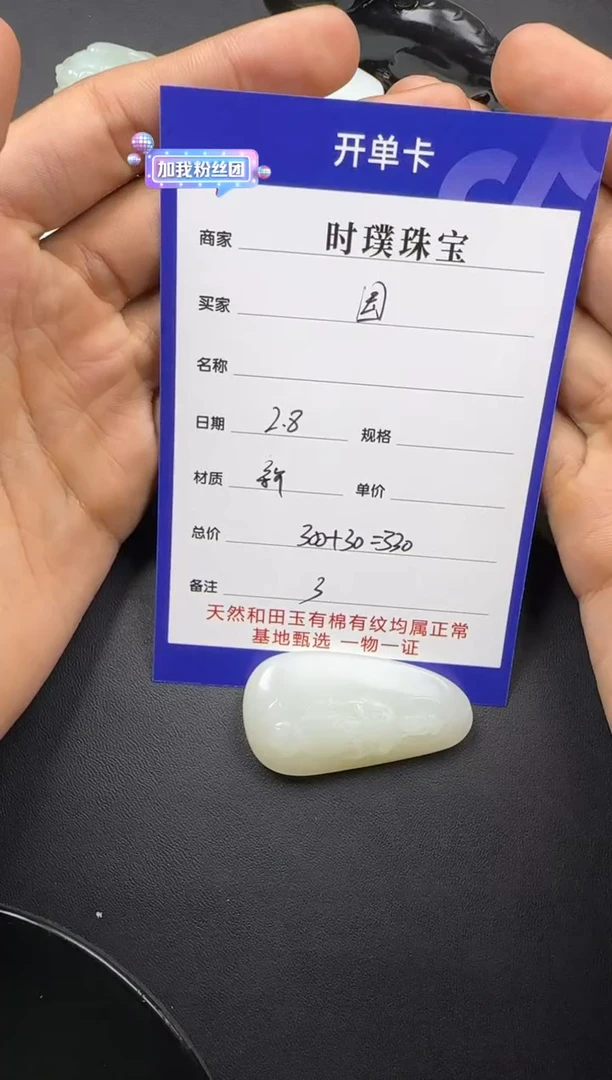 开单卡
加我粉丝团
商家 时璞珠宝
买家
名称
日期 2.8 规格
材质 单价
总价 300+30=330
备注 3
天然和田玉有棉有纹均属正常
基地甄选 一物一证